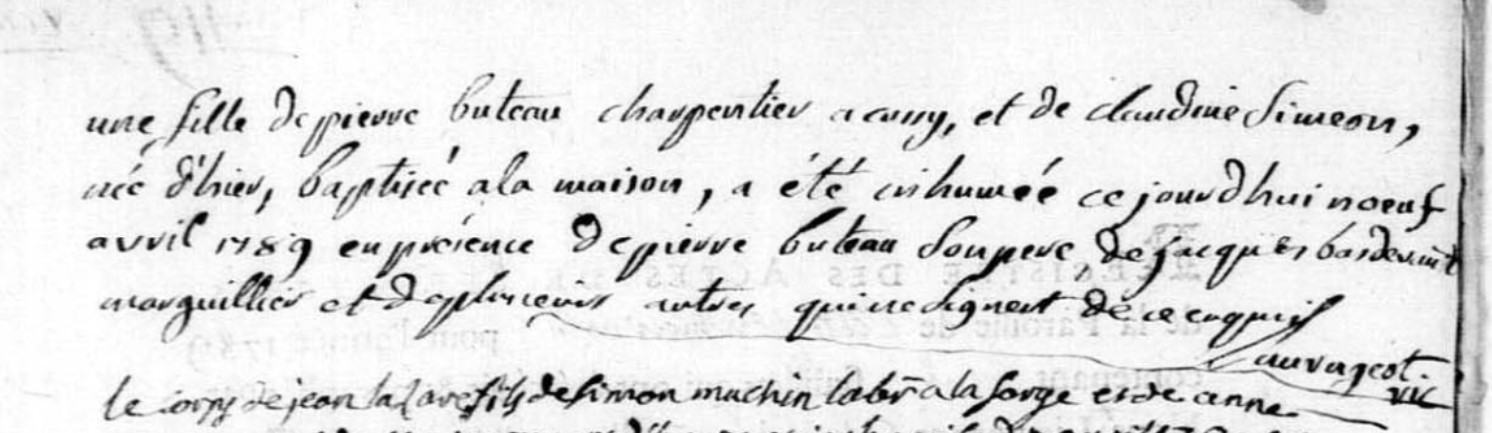 une fille de pierre buteau charpentier a cussy, et de claudine Simeon,
née d'hier, baptisée a la maison, a été inhumée ce jourd'hui noeuf
avril 1789 en presence de pierre buteau Son pere de Jacques
marguillier et de plusieurs autres qui ne signent de ce enquis
Sauvageot.
vic
le corps de jean lazare fils de Simon machin labr a la forge et de anne